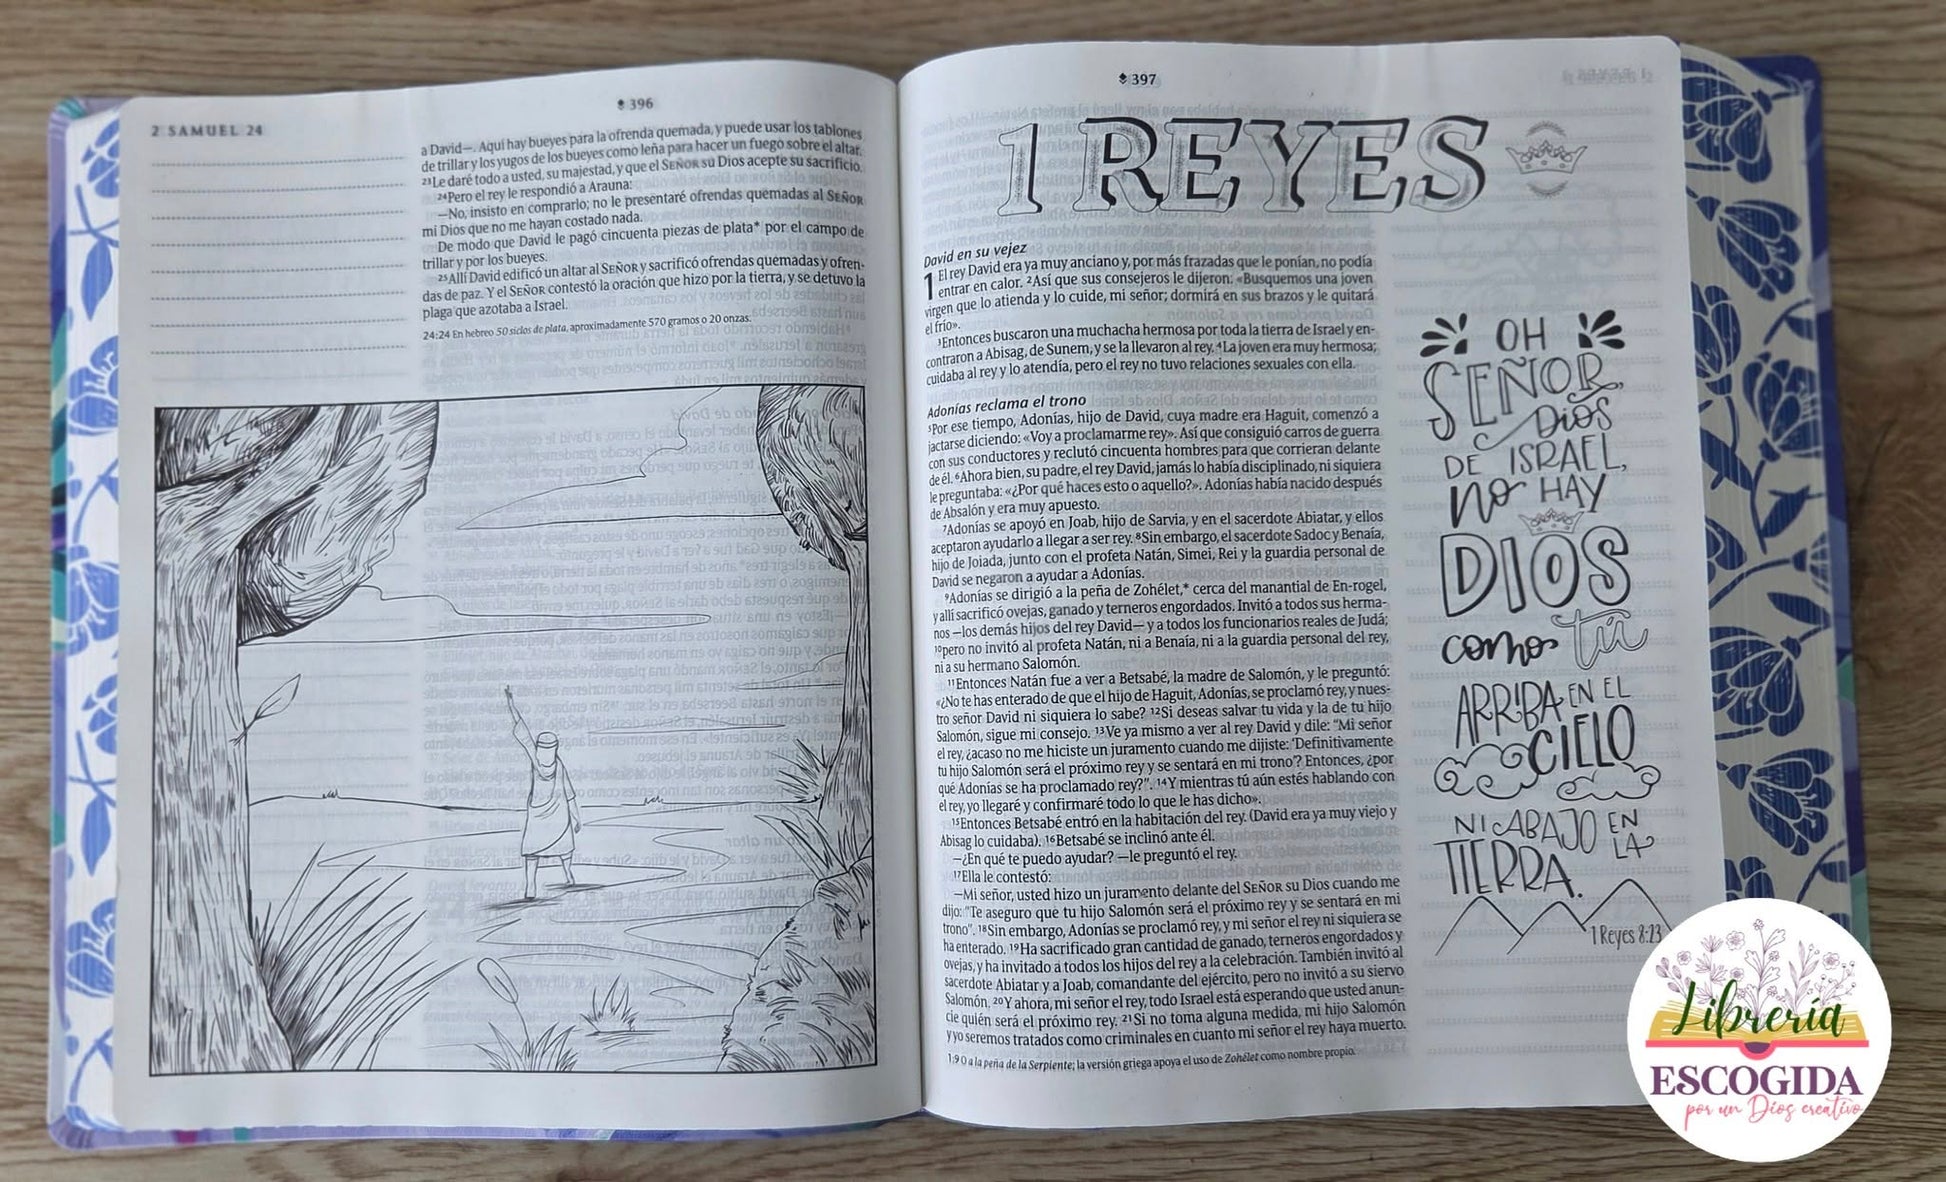 2 SAMUEL 24
396
a David—. Aquí hay bueyes para la ofrenda quemada, y puede usar los tablones
de trillar y los yugos de los bueyes como leña para hacer un fuego sobre el altar.
23Le daré todo a usted, su majestad, y que el SEÑOR su Dios acepte su sacrificio.
24Pero el rey le respondió a Arauna:
—No, insisto en comprarlo; no le presentaré ofrendas quemadas al SEÑOR
mi Dios que no me hayan costado nada.
De modo que David le pagó cincuenta piezas de plata* por el campo de
trillar y por los bueyes.
25Allí David edificó un altar al SEÑOR y sacrificó ofrendas quemadas y ofren-
das de paz. Y el SEÑOR contestó la oración que hizo por la tierra, y se detuvo la
plaga que azotaba a Israel.
24:24 En hebreo 50 siclos de plata, aproximadamente 570 gramos o 20 onzas.
397
1 REYES
David en su vejez
1 El rey David era ya muy anciano y, por más frazadas que le ponían, no podía
entrar en calor. 2Así que sus consejeros le dijeron: «Busquemos una joven
virgen que lo atienda y lo cuide, mi señor; dormirá en sus brazos y le quitará
el frío».
3Entonces buscaron una muchacha hermosa por toda la tierra de Israel y en-
contraron a Abisag, de Sunem, y se la llevaron al rey. 4La joven era muy hermosa;
cuidaba al rey y lo atendía, pero el rey no tuvo relaciones sexuales con ella.
Adonías reclama el trono
5Por ese tiempo, Adonías, hijo de David, cuya madre era Haguit, comenzó a
jactarse diciendo: «Voy a proclamarme rey». Así que consiguió carros de guerra
con sus conductores y reclutó cincuenta hombres para que corrieran delante
de él. 6Ahora bien, su padre, el rey David, jamás lo había disciplinado, ni siquiera
le preguntaba: «¿Por qué haces esto o aquello?». Adonías había nacido después
de Absalón y era muy apuesto.
7Adonías se apoyó en Joab, hijo de Sarvia, y en el sacerdote Abiatar, y ellos
aceptaron ayudarlo a llegar a ser rey. 8Sin embargo, el sacerdote Sadoc y Benaía,
hijo de Joiada, junto con el profeta Natán, Simei, Rei y la guardia personal de
David se negaron a ayudar a Adonías.
9Adonías se dirigió a la peña de Zohélet,* cerca del manantial de En-rogel,
y allí sacrificó ovejas, ganado y terneros engordados. Invitó a todos sus herma-
nos —los demás hijos del rey David— y a todos los funcionarios reales de Judá;
10pero no invitó al profeta Natán, ni a Benaía, ni a la guardia personal del rey,
ni a su hermano Salomón.
11Entonces Natán fue a ver a Betsabé, la madre de Salomón, y le preguntó:
«¿No te has enterado de que el hijo de Haguit, Adonías, se proclamó rey, y nues-
tro señor David ni siquiera lo sabe? 12Si deseas salvar tu vida y la de tu hijo
Salomón, sigue mi consejo. 13Ve ya mismo a ver al rey David y dile: "Mi señor
el rey, ¿acaso no me hiciste un juramento cuando me dijiste: 'Definitivamente
tu hijo Salomón será el próximo rey y se sentará en mi trono'? Entonces, ¿por
qué Adonías se ha proclamado rey?". 14Y mientras tú aún estés hablando con
el rey, yo llegaré y confirmaré todo lo que le has dicho».
15Entonces Betsabé entró en la habitación del rey. (David era ya muy viejo y
Abisag lo cuidaba). 16Betsabé se inclinó ante él.
—¿En qué te puedo ayudar? —le preguntó el rey.
17Ella le contestó:
—Mi señor, usted hizo un juramento delante del SEÑOR su Dios cuando me
dijo: "Te aseguro que tu hijo Salomón será el próximo rey y se sentará en mi
trono". 18Sin embargo, Adonías se proclamó rey, y mi señor el rey ni siquiera se
ha enterado. 19Ha sacrificado gran cantidad de ganado, terneros engordados y
ovejas, y ha invitado a todos los hijos del rey a la celebración. También invitó al
sacerdote Abiatar y a Joab, comandante del ejército, pero no invitó a su siervo
Salomón. 20Y ahora, mi señor el rey, todo Israel está esperando que usted anun-
cie quién será el próximo rey. 21Si no toma alguna medida, mi hijo Salomón
y yo seremos tratados como criminales en cuanto mi señor el rey haya muerto.
1:9 O a la peña de la Serpiente; la versión griega apoya el uso de Zohélet como nombre propio.
OH
SEÑOR,
DIOS
DE ISRAEL,
NO HAY
DIOS
como tú
ARRIBA EN EL
CIELO
NI ABAJO EN
LA
TIERRA.
1 Reyes 8:23
Librería
ESCOGIDA
por un Dios creativo